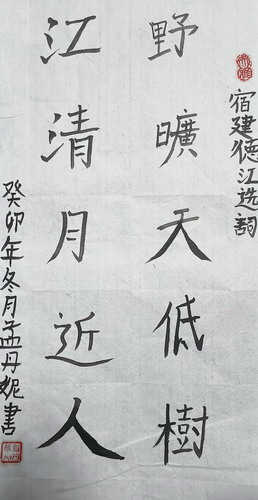 宿建德江选詞
野曠天低樹
江清月近人
癸卯年冬月孟丹妮書